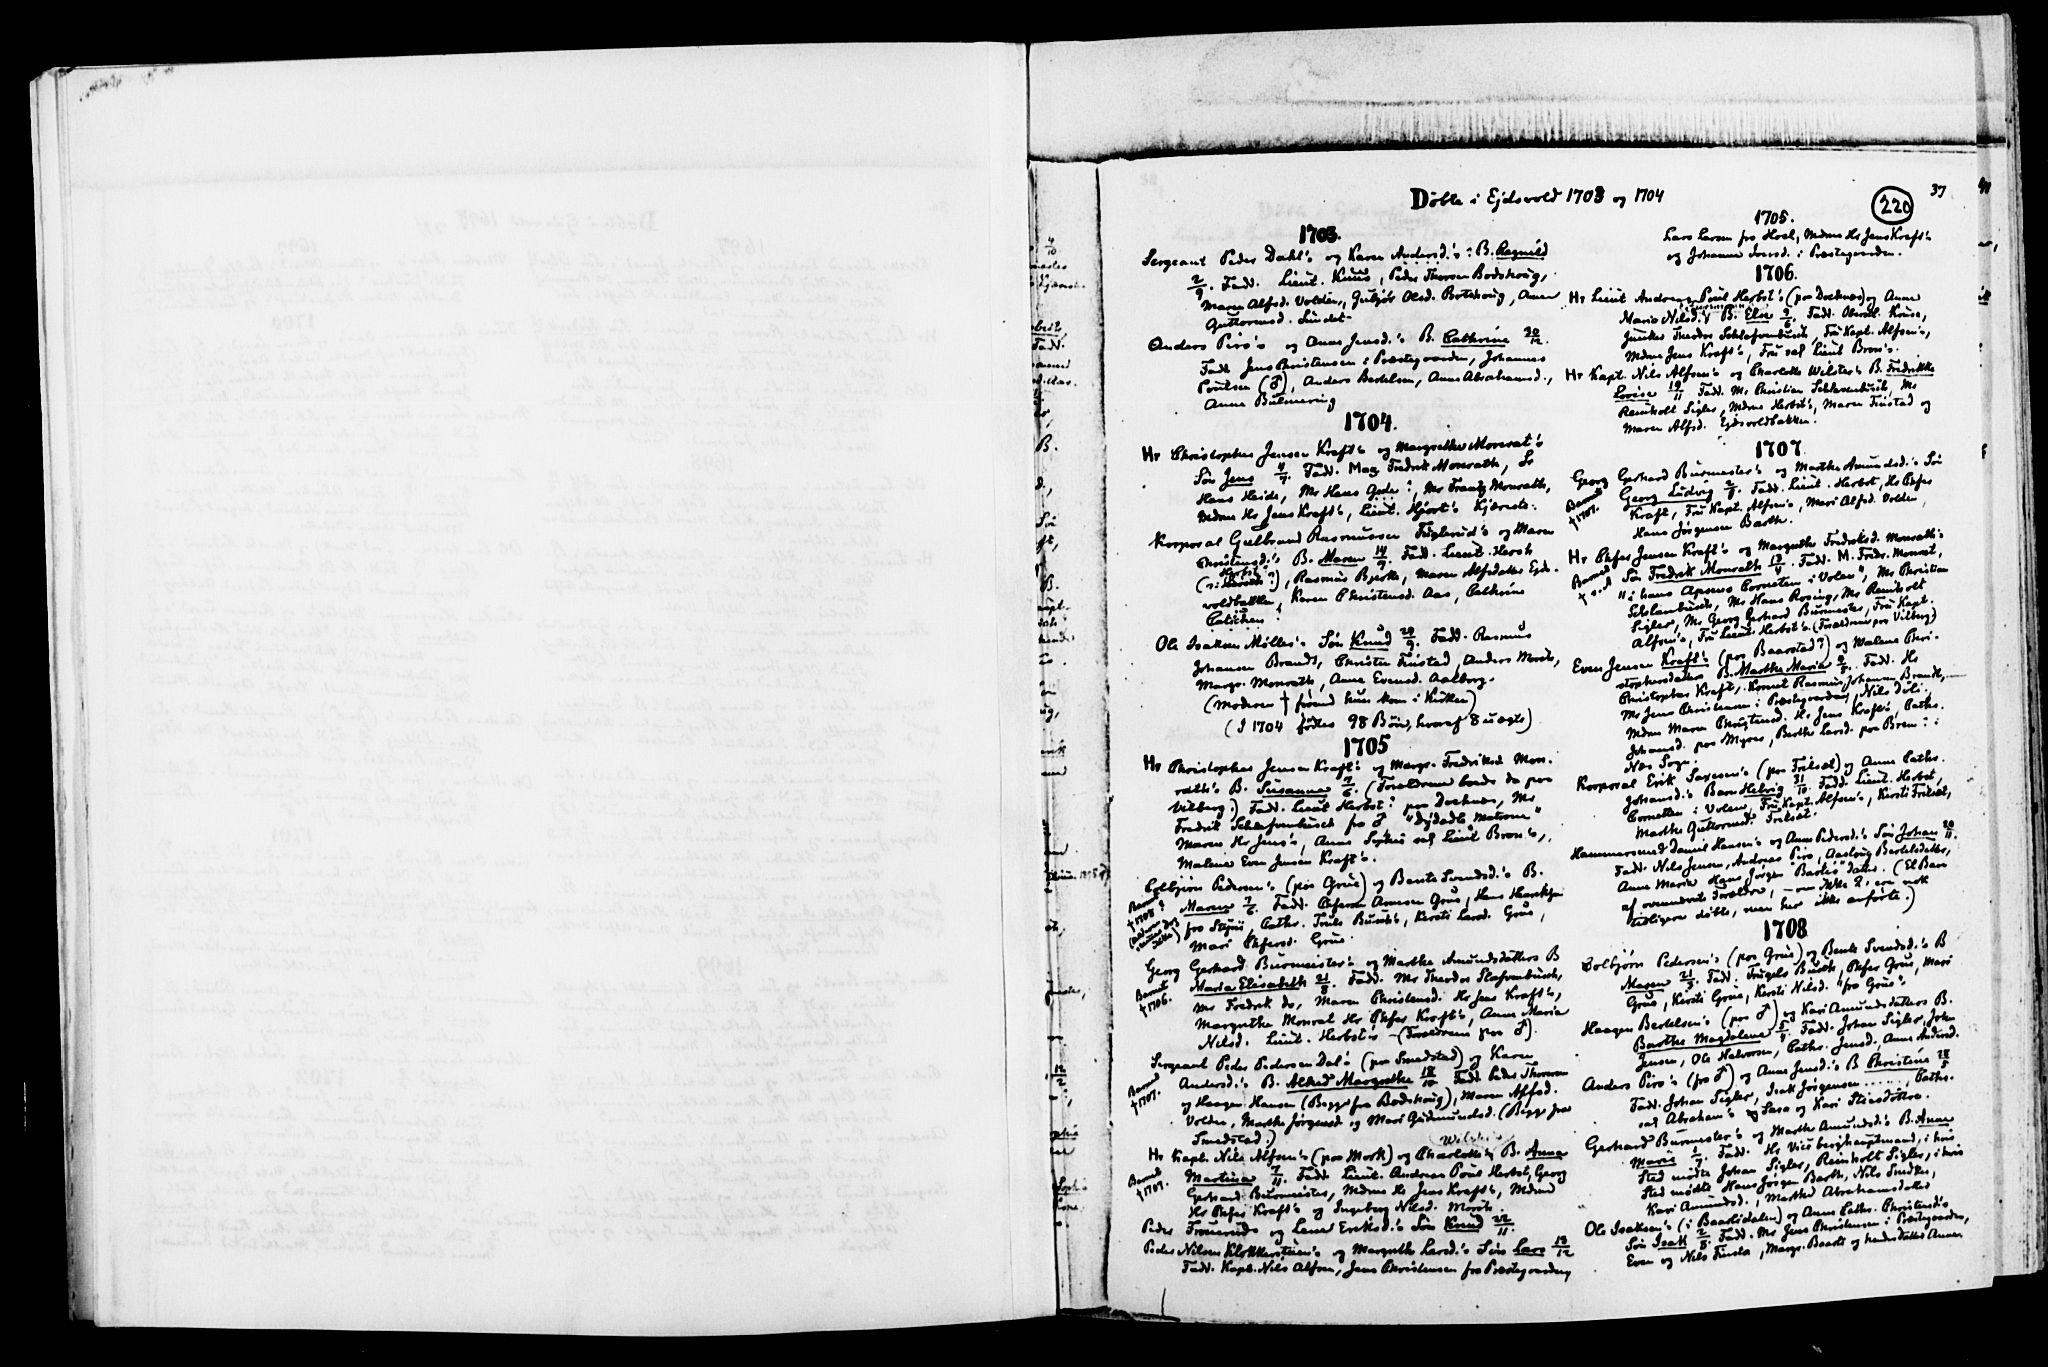 Døbte i Ejdsvold 1703 og 1704
220
37
1703.
Sergeant Peder Dahl's og Karen Andersd.'s ? B. Ragnild
2/9. Fadd. Lieut. Knus, Peder Thorsen Bodshoug,
Maren Alfsd. Volden, Gubjør Olsd. Botshoug, Anne
Guttormsd. Lindet
Anders Piro's og Anne Jensd.'s B. Cathrine 30/12.
Fadd. Jens Christensen i Præstegaarden, Johannes
Poulsen (♂), Anders Bertelsen, Anne Abrahamsd.,
Anne Bulmering
1704.
Hr Christopher Jensen Kraft's og Margrethe Monrat's
Søn Jens 4/7. Fadd. Mag Fredrik Monrath, Sr
Hans Heide, Mr Hans Gude?, Mr Frantz Monrath,
Mdme Hr Jens Kraft's, Lieut. Hjort's Kjæreste.
Korporal Gulbrand Rasmussen Fuglerud's og Maren
Christensd.'s B. Maren 14/9. Fadd. Lieut. Hersh
(s: Herbst?), Rasmus Bjerke, Maren Alfsdatter Ejds-
voldbakken, Karen Christensd. Aas, Cathrine
Ole Isaksen Møller's Søn Knud 29/9. Fadd. Rasmus
Johansen Brandt, Christen Finstad, Anders Mork,
Margr. Monrath, Anne Evensd. Aalborg.
(Moderen † førend hun kom i Kirken)
(I 1704 fødtes 98 Børn, hvoraf 8 uægte)
1705
Hr Christopher Jensen Kraft's og Margr. Fredriksd. Mon-
rath's B. Susanne 7/6. (Forældrene boede da paa
Vilberg.) Fadd. Lieut Herbst? paa Doknes, Mr
Fredrik Schlafvenbusch fra ♂ "Dydædle Matrone"
Maren Hr Jens's, Anna Sophie sal Lieut Bron's,
Malene Even Jensen Kraft's.
Colbjørn Pedersen's (paa Grue) og Bente Svendsd.'s B.
Maren 7/6. Fadd. Chfersen Arnesen Grue, Hans
fra Styri, Cathr. Truls Burås's, Kersti Larsd. Grue,
Mari Chfersd. Grue.
Barnet
† 1708?
Georg Gerhard Burmeister's og Marthe Amundsdatters B
Maria Elisabeth 21/8. Fadd. Mr Theodor Slafvenbusch,
Mr Fredrik do, Maren Christensd. Hr Jens Kraft's,
Margrethe Monrat Hr Chfer Kraft's, Anne Maria
Nilsd. Lieut. Herbst's (Forældrene paa ♂).
Barnet
† 1706.
Sergeant Peder Pedersen Dal's (paa Smedstad) og Karen
Andersd.'s B. Alhed Margrethe 18/10 Fadd. Peder Thoresen
og Haagen Hansen (Begge fra Bodshoug), Maren Alfsd.
Volden, Marthe Jørgensd og Mari Gudmundsd. (Begge fra
Smedstad.)
Barnet
† 1707.
Hr Kapt. Nils Alfsen's (paa Mork) og Charlotte Wilster's B. Anna
Martina 7/11. Fadd. Lieut. Andreas Poul Herbst, Georg
Gerhard Burmeister, Mdme Hr Jens Kraft's, Mdme
Hr Chfer Kraft's og Ingeborg Nilsd. Mork.
Barnet
† 1707.
Peder Trouerud's og Lene Eriksd.'s Søn Knud 22/11
Peder Nilsen Klokkerstuen's og Margrethe Larsd.'s Søn Lars 13/12
Fadd. Kapt. Nils Alfsen, Jens Christensen fra Præstegaarden
1705.
Lars Larsen fra Hoel, Mdme Hr Jens Kraft's
og Johanne Iversd. i Præstegaarden.
1706.
Hr Lieut Andreas Poul Herbst's (paa Doeknes) og Anne
Maria Nilsd.'s B. Else 9/6. Fadd. Oberstl. Kruse,
Junker Theodor Schlafvenbusch, Fru Kapt. Alfsen's,
Mdme Jens Kraft's, Fru sal Lieut Bron's.
Hr Kapt. Nils Alfsen's og Charlotte Wilster's B. Fredrikke
Lovise 19/11 Fadd. Mr Christian Schlavenbusch, Mr
Reinholt Sigler, Mdme Herbst's, Maren Finstad og
Maren Alfsd. Ejdsvoldbakken.
1707
Georg Gerhard Burmester's og Marthe Amundsd.'s Søn
Georg Ludvig 2/8. Fadd. Lieut. Herbst, Hr Chfer
Kraft, Fru Kapt. Alfsen's, Mari Alfsd. Volden,
Hans Jørgensen Barth.
Barnet
† 1707.
Hr Chfer Jensen Kraft's og Margrethe Fredriksd. Monrath's
Søn Fredrik Monrath 13/4. Fadd. M. Fredr. Monrat,
"i hans Apsens Corneten i Volen", Mr Christian
Schlavenbusch, Mr Hans Rosing, Mr Reinholt
Sigler, Mr Georg Gerhard Burmester, Fru Kapt.
Alfsen's, Fru Lieut. Herbst's. (Forældrene paa Vilberg)
Barnet
† s. d
Even Jensen Kraft's (paa Baarstad?) og Malene Chri-
stophersdatter B. Marthe Maria 9/5. Fadd. Hr
Christopher Kraft, Kornet Rasmus Johansen Brandt,
Mr Jens Christensen i Præstegaarden, Nils Døli,
Mdme Maren Christensd. Hr Jens Kraft's, Cathr.
Johansd. paa Myrer, Berthe Larsd. paa Bren? i
Næs Sogn.
Korporal Erik Saxesen's (paa Fritsæt) og Anne Cathr.
Johansd.'s Barn Helvig 31/10. Fadd. Lieut. Herbst,
Cornetten i Volen, Fru Kapt. Alfsen's, Kirsti Fritsæt,
Marthe Guttormsd. Fritsæt.
Hammersmed Daniel Hansen's og Anne Pedersd.'s Søn Johan 20/11.
Fadd. Nils Jensen, Andreas Piro, Aaslaug Bertelsdatter,
Anne Marie Hans Jørgen Bartes datter. (El Barn
af ovennævnte Forældre, – om ikke 2, ere nok
tidligere døbte, men her ikke anførte.)
1708
Colbjørn Pedersen's (paa Grue) og Bente Svendsd.'s B
Maren 21/3. Fadd. Trugels Burås, Chfer Grue, Mari
Grue, Kersti Grue, Kersti Nilsd. fra Grue.
Haagen Bertelsen's (paa ♂) og Kari Amundsdatters B.
Barthe Magdalene 5/4. Fadd. Johan Sigler, John
Jensen, Ole Halvorsen, Cathr. Jensd., Anne Andersd.
Anders Piro's (fra ♂) og Anne Jensd.'s B Christine 28/5
Fadd. Johan Sigler, Isak Jørgensen ......, Cathr.
sal Abraham's og Kari Stiesdatter.
Gerhard Burmester's og Marthe Amundsd.'s B. Anne
Marie 1/7. Fadd. Hr Vice berghauptmand, i hvis
Sted mødte Johan Sigler, Reinholt Sigler, i hvis
Sted mødte Hans Jørgen Barth, Nils Smelter,
Kari Amundsd., Marthe Abrahamsdatter
Ole Isaksen's (i Baarlidalen) og Anne Cathr. Christensd's
Søn Isak 2/8. Fadd. Mr Jens Christensen i Præstegaarden,
Even og Nils Finsta, Margr. Baarli og hendes datter Anne